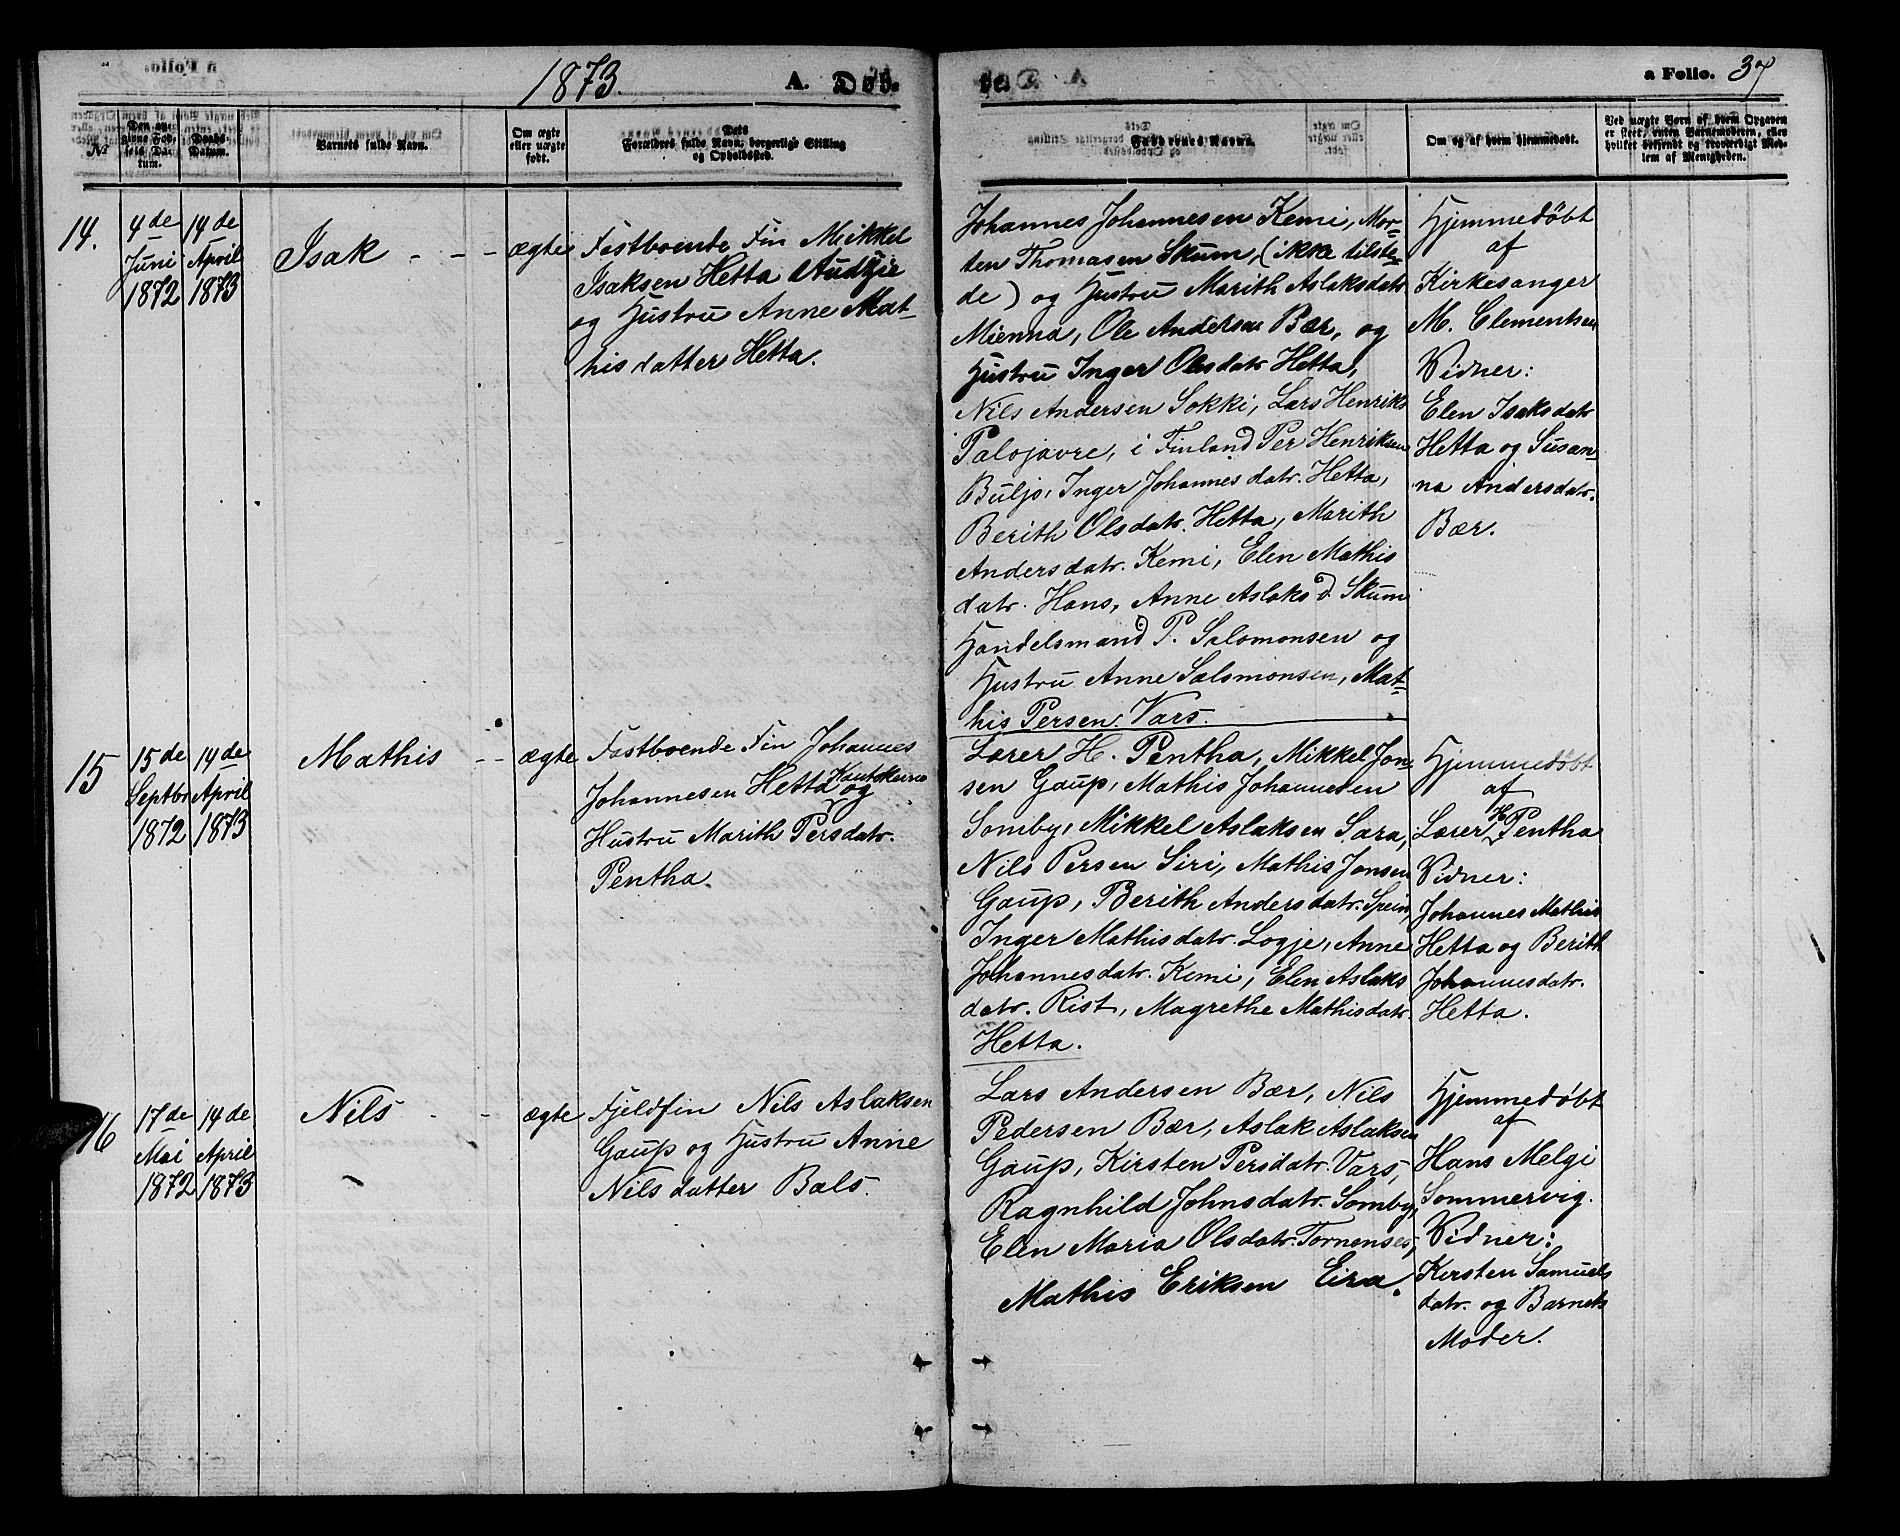 1873.
A. Døb-
te.
a Folio. 37
№
Den an-
givne Fød-
sels Da-
tum.
Daabs
Datum.
Barnets fulde Navn.
Om ægte
eller uægte
født.
Dets
Forældres fulde Navn, borgerlige Stilling
og Opholdssted.
Faddernes Navne.
Om og af hvem hjemmedøbt.
Ved uægte Børn af hvem Opgaven
er skeet, enten Barnemoderen, eller
hvilket bekjendt og troværdigt Med-
lem af Menigheden.
14.
4de
Juni
1872
14de
April
1873
Isak - - -
ægte
Fastboende Fin Mikkel
Isaksen Hetta Audzie
og Hustru Anne Mat-
hisdatter Hetta.
Johannes Johannesen Kemi, Mor-
ten Thomasen Skum, (ikke tilste-
de) og Hustru Marith Aslaksdatr
Mienna, Ole Andersen Bær, og
Hustru Inger Olsdatr Hetta,
Nils Andersen Sokki, Lars Henriks
Palojavre, i Finland Per Henriksen
Buljo, Inger Johannesdatr. Hetta,
Berith Olsdatr. Hetta, Marith
Andersdatr. Kemi, Elen Mathis
datr. Hans, Anne Aslaksd. Skum
Handelsmand P. Salomonsen og
Hustru Anne Salomonsen, Mat-
his Persen Vars.
Hjemmedøbt
af
Kirkesanger
M. Clementsen
Vidner:
Elen Isaksdatr
Hetta og Susan-
na Andersdatr.
Bær.
15
15de
Septbr
1872
14de
April
1873
Mathis - -
ægte
Fastboende Fin Johannes
Johannesen Hetta Kautokeino og
Hustru Marith Persdatr.
Pentha.
Lærer H. Pentha, Mikkel Jon-
sen Gaup, Mathis Johannesen
Somby, Mikkel Aslaksen Sara,
Nils Persen Siri, Mathis Jonsen
Gaup, Berith Andersdatr. Spein,
Inger Mathisdatr. Logje, Anne
Johannesdatr. Kemi, Elen Aslaks
datr. Rist, Magrethe Mathisdatr.
Hetta.
Hjemmedøbt
af
Lærer H. Pentha
Vidner:
Johannes Mathis
Hetta og Berith
Johannesdatr.
Hetta.
16
17de
Mai
1872
14de
April
1873
Nils - -
ægte
Fjeldfin Nils Aslaksen
Gaup og Hustru Anne
Nilsdatter Bals.
Lars Andersen Bær, Nils
Pedersen Bær, Aslak Aslaksen
Gaup, Kirsten Persdatr. Vars,
Ragnhild Johnsdatr. Somby,
Elen Maria Olsdatr. Tornenses,
Mathis Eriksen Eira.
Hjemmedøbt
af
Hans Melgi
Sommervig.
Vidner:
Kirsten Samuels
datr. og Barnets
Moder.